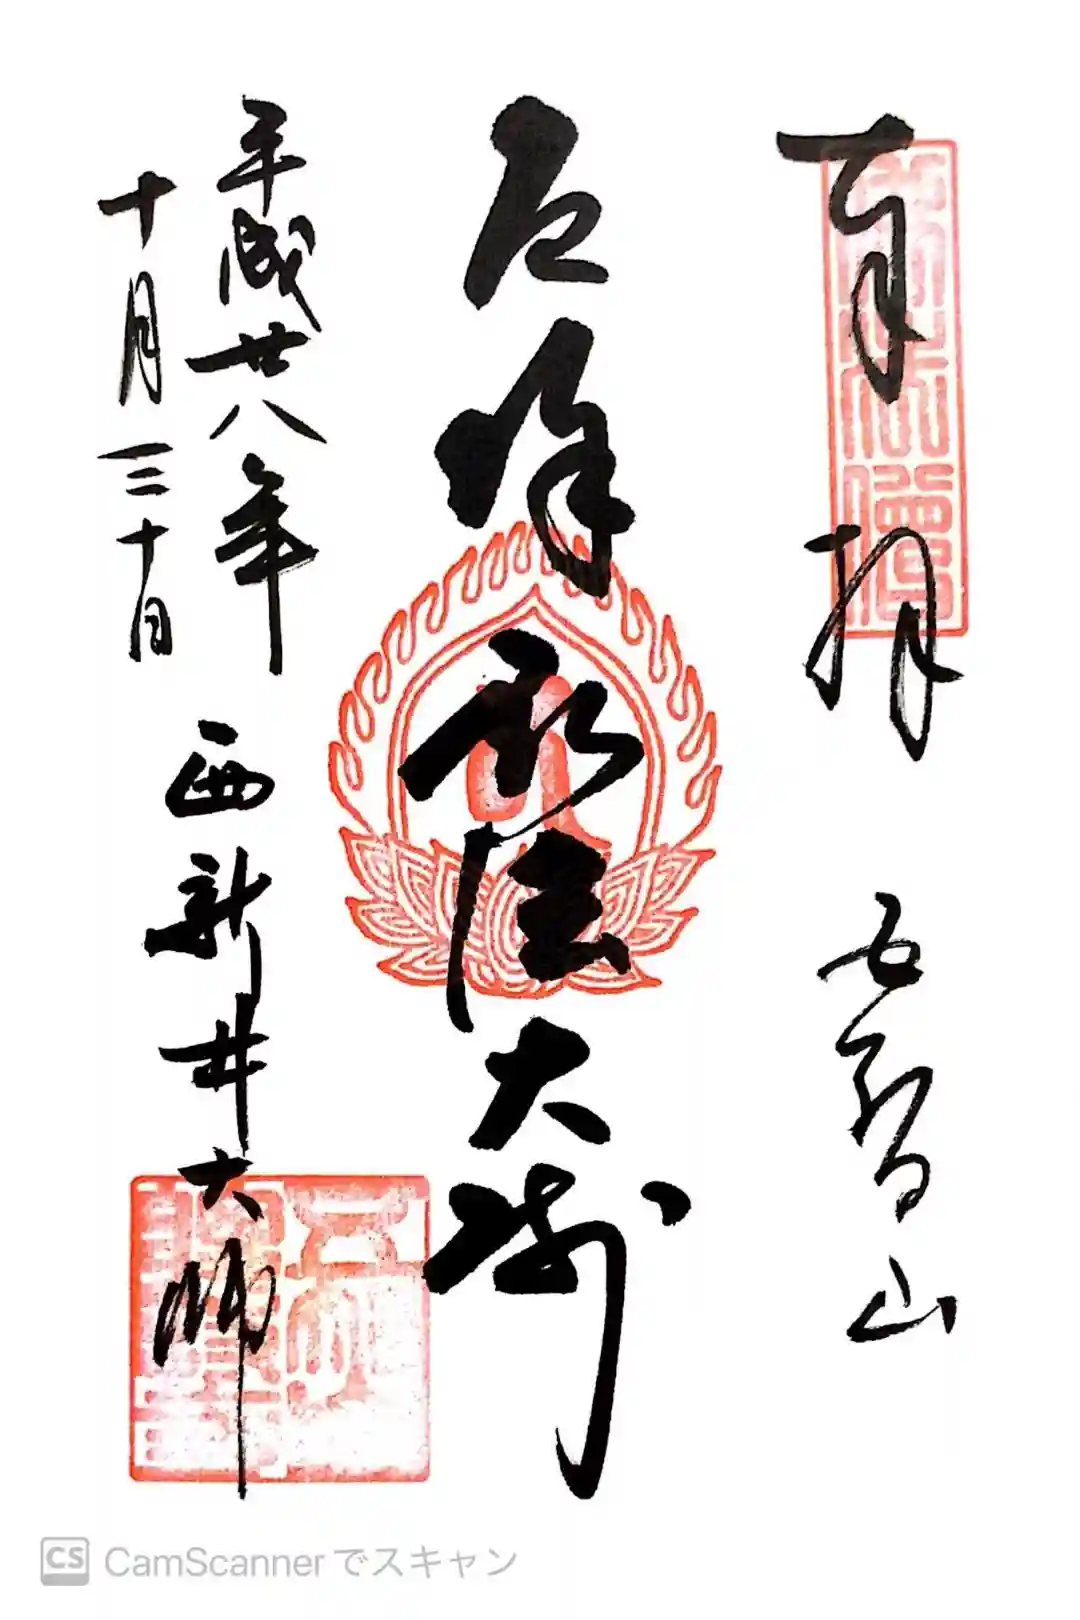 奉拝 五智山
厄除弘法大師
平成廿八年
十月三十日
西新井大師
CS CamScannerでスキャン